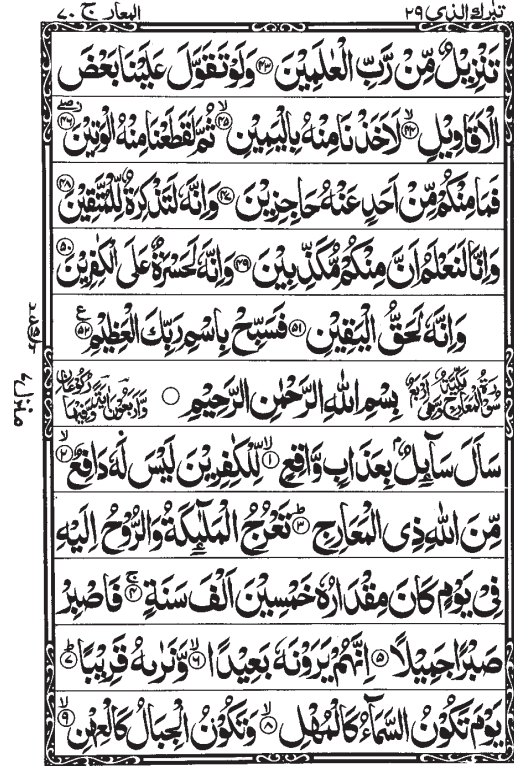 تبٰرك الذى ٢٩
المعارج ٧٠
تَنْزِيْلٌ مِّنْ رَّبِّ الْعٰلَمِيْنَ ﴿۴۳﴾ وَلَوْ تَقَوَّلَ عَلَيْنَا بَعْضَ
الْاَقَاوِيْلِ ﴿۴۴﴾ۙ لَاَخَذْنَا مِنْهُ بِالْيَمِيْنِ ﴿۴۵﴾ۙ ثُمَّ لَقَطَعْنَا مِنْهُ الْوَتِيْنَ ﴿۴۶﴾
فَمَا مِنْكُمْ مِّنْ اَحَدٍ عَنْهُ حٰجِزِيْنَ ﴿۴۷﴾ وَاِنَّهٗ لَتَذْكِرَةٌ لِّلْمُتَّقِيْنَ ﴿۴۸﴾
وَاِنَّا لَنَعْلَمُ اَنَّ مِنْكُمْ مُّكَذِّبِيْنَ ﴿۴۹﴾ وَاِنَّهٗ لَحَسْرَةٌ عَلَى الْكٰفِرِيْنَ ﴿۵۰﴾
وَاِنَّهٗ لَحَقُّ الْيَقِيْنِ ﴿۵۱﴾ فَسَبِّحْ بِاسْمِ رَبِّكَ الْعَظِيْمِ ﴿۵۲﴾ ع
بِسْمِ اللّٰهِ الرَّحْمٰنِ الرَّحِيْمِ
سَاَلَ سَآئِلٌۢ بِعَذَابٍ وَّاقِعٍ ﴿۱﴾ۙ لِّلْكٰفِرِيْنَ لَيْسَ لَهٗ دَافِعٌ ﴿۲﴾ۙ
مِّنَ اللّٰهِ ذِى الْمَعَارِجِ ﴿۳﴾ؕ تَعْرُجُ الْمَلٰٓئِكَةُ وَالرُّوْحُ اِلَيْهِ
فِىْ يَوْمٍ كَانَ مِقْدَارُهٗ خَمْسِيْنَ اَلْفَ سَنَةٍ ﴿۴﴾ۚ فَاصْبِرْ
صَبْرًا جَمِيْلًا ﴿۵﴾ اِنَّهُمْ يَرَوْنَهٗ بَعِيْدًا ﴿۶﴾ۙ وَّنَرٰىهُ قَرِيْبًا ﴿۷﴾ؕ
يَوْمَ تَكُوْنُ السَّمَآءُ كَالْمُهْلِ ﴿۸﴾ۙ وَتَكُوْنُ الْجِبَالُ كَالْعِهْنِ ﴿۹﴾ۙ
منزل